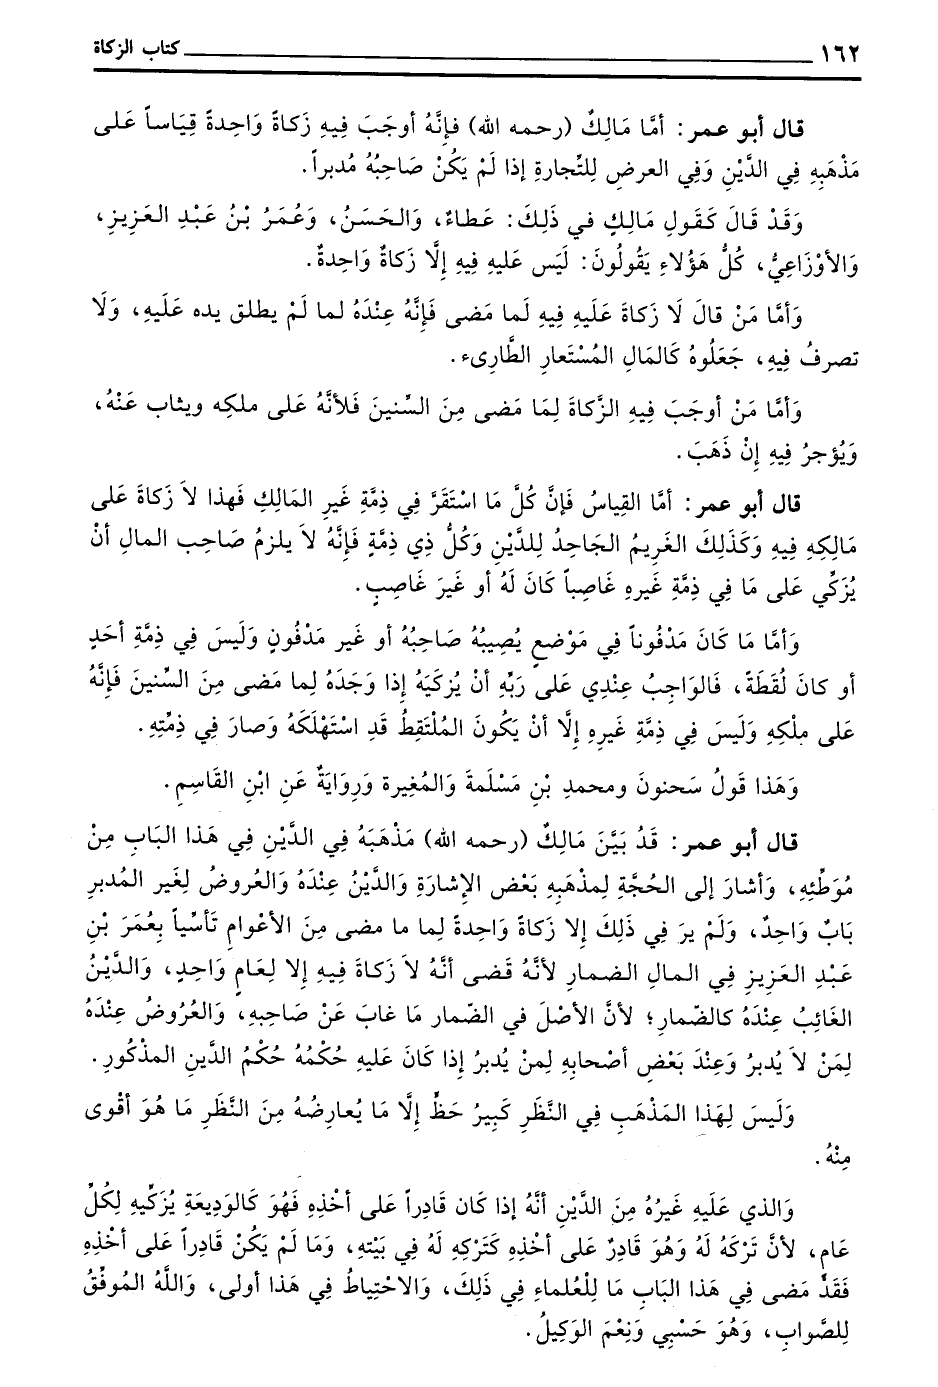 ١٦٢ كتاب الزكاة
قال أبو عمر: أمَّا مَالِكٌ (رحمه الله) فإنَّهُ أوجَبَ فِيهِ زَكَاةً وَاحِدةً قِيَاساً عَلى
مَذْهَبِهِ فِي الدَّيْنِ وَفِي العرضِ لِلتِّجارةِ إذا لَمْ يَكُنْ صَاحِبُهُ مُدبراً.
وَقَدْ قَالَ كَقَولِ مَالِكٍ في ذَلِكَ: عَطاءٌ، وَالحَسَنُ، وَعُمَرُ بْنُ عَبْدِ العَزِيزِ،
وَالأوْزَاعِيُّ، كُلُّ هَؤُلاءِ يَقُولُونَ: لَيَس عَليهِ فِيهِ إلَّا زَكاةٌ وَاحِدةٌ.
وَأمَّا مَنْ قالَ لَا زَكاةَ عَلَيهِ فِيهِ لَما مَضى فَإنَّهُ عِنْدَهُ لما لَمْ يطلق يده عَلَيهِ، وَلَا
تصرفُ فِيهِ، جَعَلُوهُ كَالمَالِ المُسْتَعارِ الطَّارىء.
وَأمَّا مَنْ أوجَبَ فِيهِ الزَّكاةَ لِمَا مَضى مِنَ السِّنينَ فَلأنَّهُ عَلى ملكِه ويثاب عَنْهُ،
وَيُؤجرُ فِيهِ إنْ ذَهَبَ.
قال أبو عمر: أمَّا القِياسُ فَإنَّ كُلَّ مَا اسْتَقَرَّ فِي ذِمَّةِ غَيرِ المَالِكِ فَهذا لاَ زَكاةَ عَلى
مَالِكِهِ فِيهِ وَكَذَلِكَ الغَرِيمُ الجَاحِدُ لِلدَّيْنِ وَكُلُّ ذِي ذِمَّةٍ فَإنَّهُ لاَ يلزمُ صَاحِب المالِ أنْ
يُزَكِّي عَلى مَا فِي ذِمَّةِ غَيرِهِ غَاصِباً كَانَ لَهُ أو غَيرَ غَاصِبٍ.
وَأمَّا مَا كَانَ مَدْفُوناً فِي مَوْضعٍ يُصِيبُهُ صَاحِبُهُ أو غَير مَدْفُونٍ وَلَيسَ فِي ذِمَّةِ أحَدٍ
أو كانَ لُقَطَةً، فَالوَاجِبُ عِنْدِي عَلى رَبِّهِ أنْ يُزكيَهُ إذا وَجَدَهُ لِما مَضى مِنَ السِّنينَ فَإنَّهُ
عَلى ملْكِهِ وَلَيسَ فِي ذِمَّةِ غَيرِهِ إلَّا أنْ يَكُونَ المُلْتَقِطُ قَدِ اسْتَهْلَكَهُ وَصارَ فِي ذِمَّتِهِ.
وَهَذا قَولُ سَحنونَ ومحمدِ بْنِ مَسْلَمةَ وَالمُغِيرة وَرِوَايَةٌ عَنِ ابْنِ القَاسِمِ.
قال أبو عمر: قَدْ بَيَّنَ مَالِكٌ (رحمه الله) مَذْهَبَهُ فِي الدَّيْنِ فِي هَذا البَابِ مِنْ
مُوَطَّئِهِ، وَأشارَ إلى الحُجَّةِ لِمذْهَبِهِ بَعْض الإشارَةِ وَالدَّيْنُ عِنْدَهُ وَالعُروضُ لِغَير المُدبرِ
بَابٌ وَاحِدٌ، وَلَمْ يرَ فِي ذَلِكَ إلا زَكاةً وَاحدةً لِما ما مضى مِنَ الأعْوامِ تَأسِّياً بِعُمَرَ بْنِ
عَبْدِ العَزِيزِ فِي المالِ الضمارِ لأنَّهُ قَضى أنَّهُ لاَ زَكاةَ فِيهِ إلا لِعَامٍ وَاحِدٍ، وَالدَّيْنُ
الغَائِبُ عِنْدَهُ كالضّمارِ؛ لأنَّ الأصْلَ في الضّمار مَا غابَ عَنْ صَاحِبِهِ، وَالعُرُوضُ عِنْدَهُ
لِمَنْ لاَ يُدبرُ وَعِنْدَ بَعْضِ أصْحابِهِ لِمنْ يُدبرُ إذا كَانَ عَليهِ حُكْمُهُ حُكْمُ الدَّينِ المذْكُورِ.
وَلَيسَ لِهَذا المَذْهَبِ فِي النَّظَرِ كَبِيرُ حَظٍّ إلَّا مَا يُعارِضُهُ مِنَ النَّظَرِ مَا هُوَ أقْوى
مِنْهُ.
وَالذي عَلَيهِ غَيرُهُ مِنَ الدَّيْنِ أنَّهُ إذا كَان قَادِراً عَلى أخْذِهِ فَهُوَ كَالوَدِيعَةِ يُزَكِّيهِ لِكُلِّ
عَامٍ، لأنَّ تَرْكَهُ لَهُ وَهُوَ قَادِرٌ عَلى أخْذِهِ كَتَرْكِهِ لَهُ فِي بَيْتِهِ، وَمَا لَمْ يَكُنْ قَادِراً عَلى أخْذِهِ
فَقَدْ مَضى فِي هَذا البَابِ مَا لِلْعُلماءِ فِي ذَلِكَ، وَالاحْتِياطُ فِي هَذا أولى، وَاللَّهُ المُوفِّقُ
لِلصَّوابِ، وَهُوَ حَسْبِي وَنِعْمَ الوَكِيلُ.